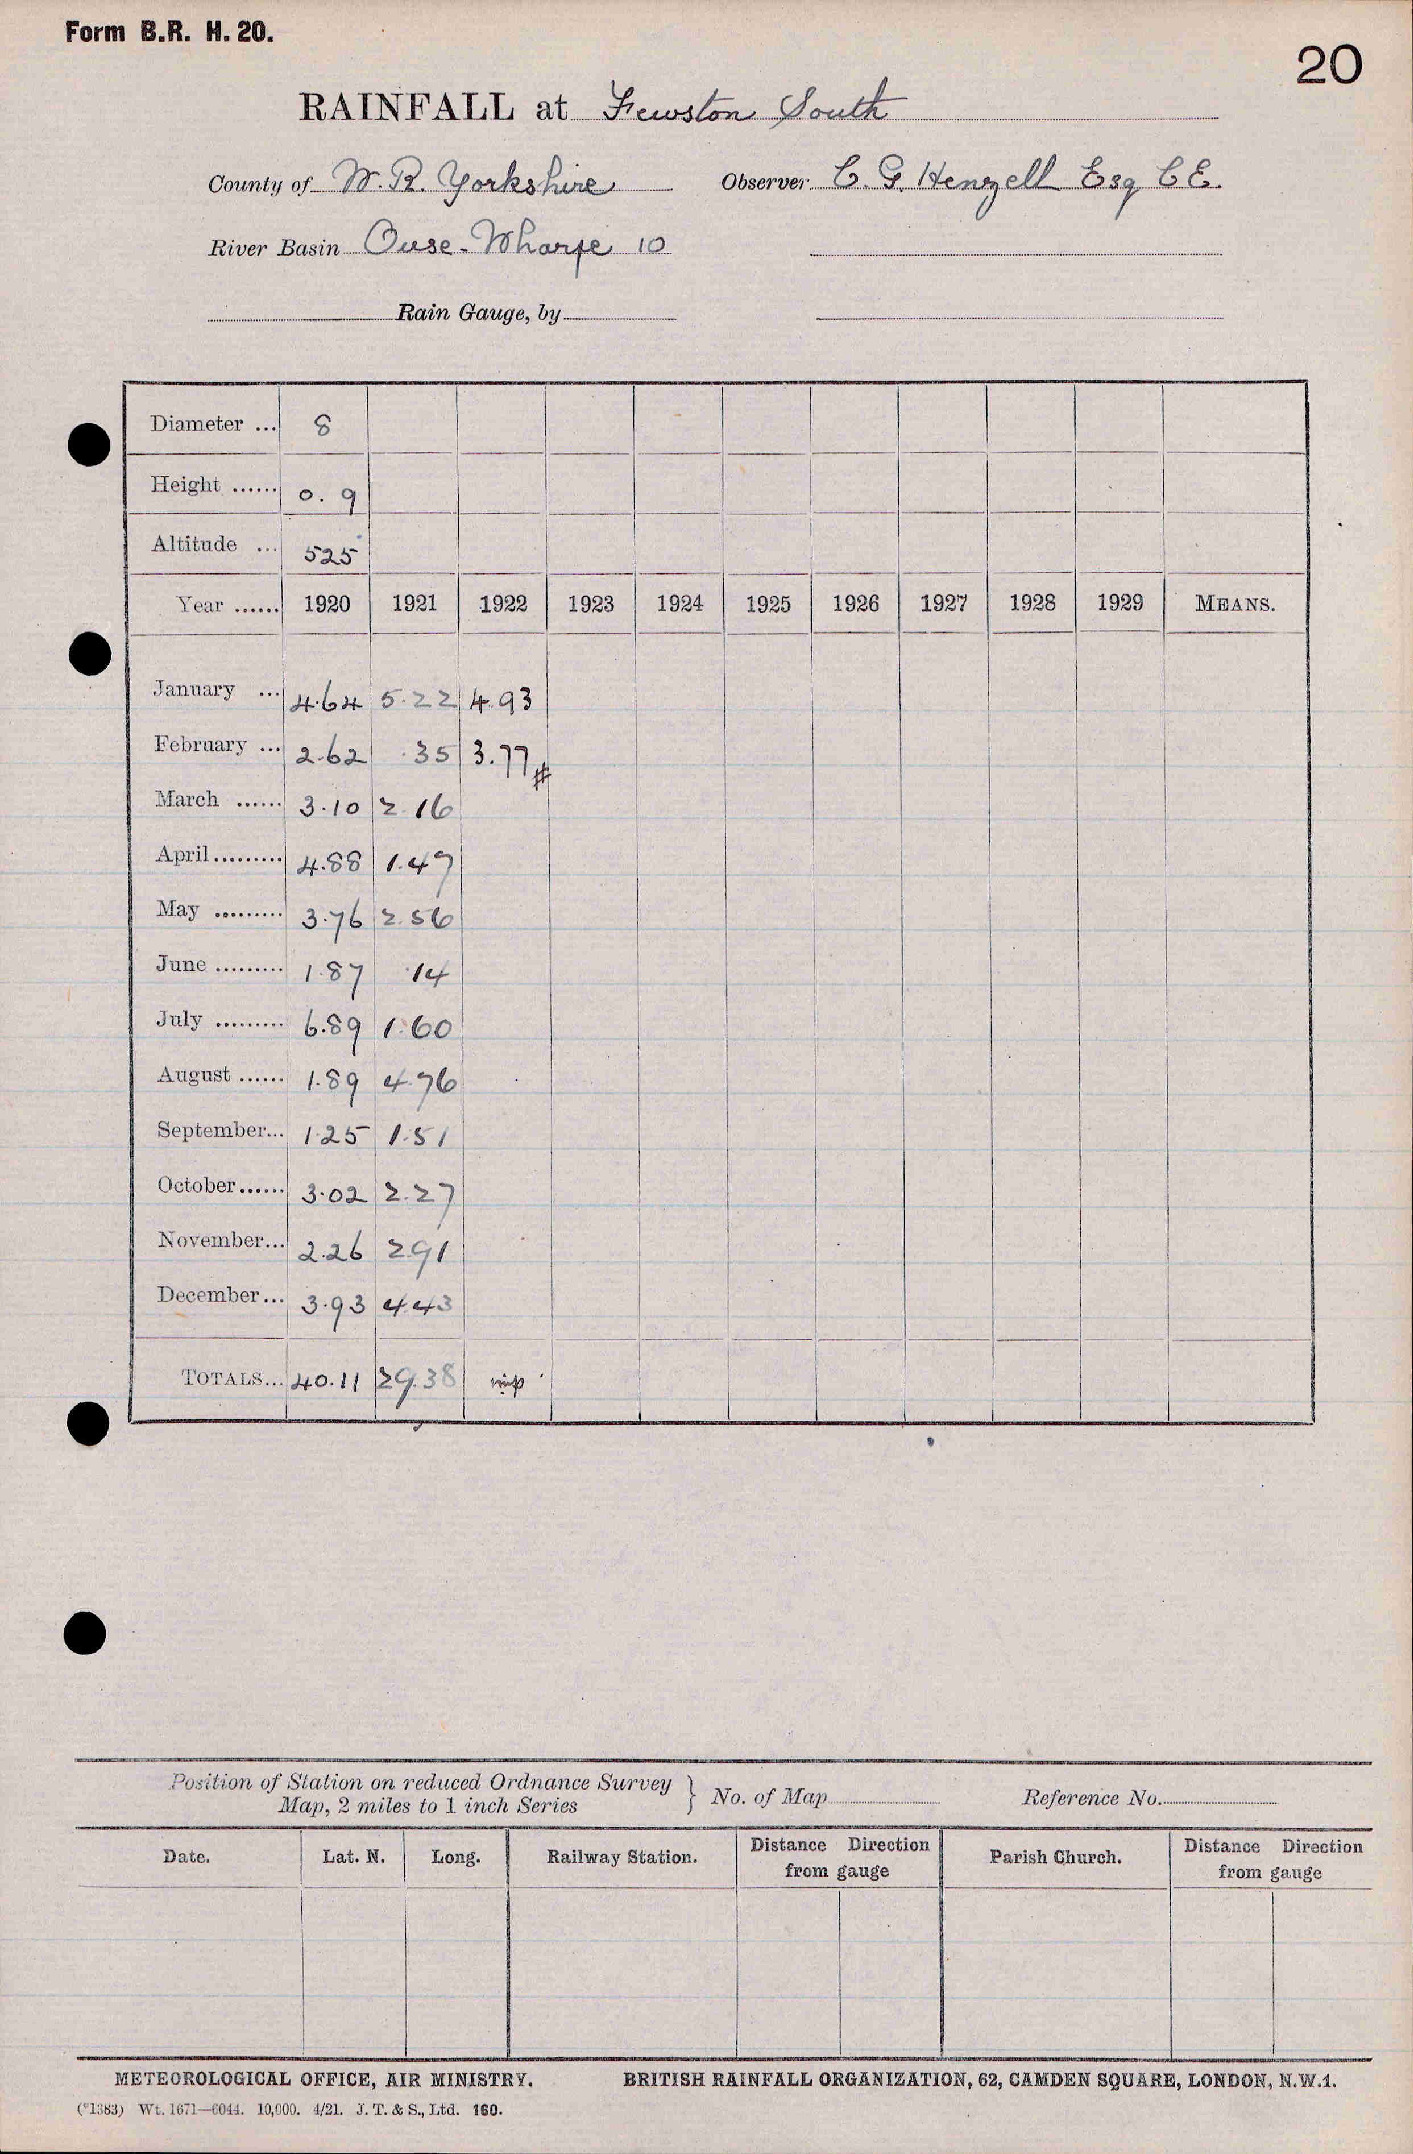 Form B.R. H. 20.
20
RAINFALL at Fewston South
County of W. R. Yorkshire Observer C. G. Henzell Esq C E.
River Basin Ouse - Wharfe 10
Rain Gauge, by
Diameter ... 8
Height ...... 0. 9
Altitude ... 525
Year ...... 1920 1921 1922 1923 1924 1925 1926 1927 1928 1929 MEANS.
January ... 4.64 5.22 4.93
February ... 2.62 .35 3.77 #
March ...... 3.10 2.16
April......... 4.88 1.47
May ......... 3.76 2.56
June ......... 1.87 .14
July ......... 6.89 1.60
August ...... 1.89 4.76
September... 1.25 1.51
October...... 3.02 2.27
November... 2.26 2.91
December... 3.93 4.43
TOTALS... 40.11 29.38
Position of Station on reduced Ordnance Survey
Map, 2 miles to 1 inch Series } No. of Map Reference No.
Date. Lat. N. Long. Railway Station. Distance Direction from gauge Parish Church. Distance Direction from gauge
METEOROLOGICAL OFFICE, AIR MINISTRY. BRITISH RAINFALL ORGANIZATION, 62, CAMDEN SQUARE, LONDON, N.W.1.
(*1383) Wt. 1671—6044. 10,000. 4/21. J. T. & S., Ltd. 160.